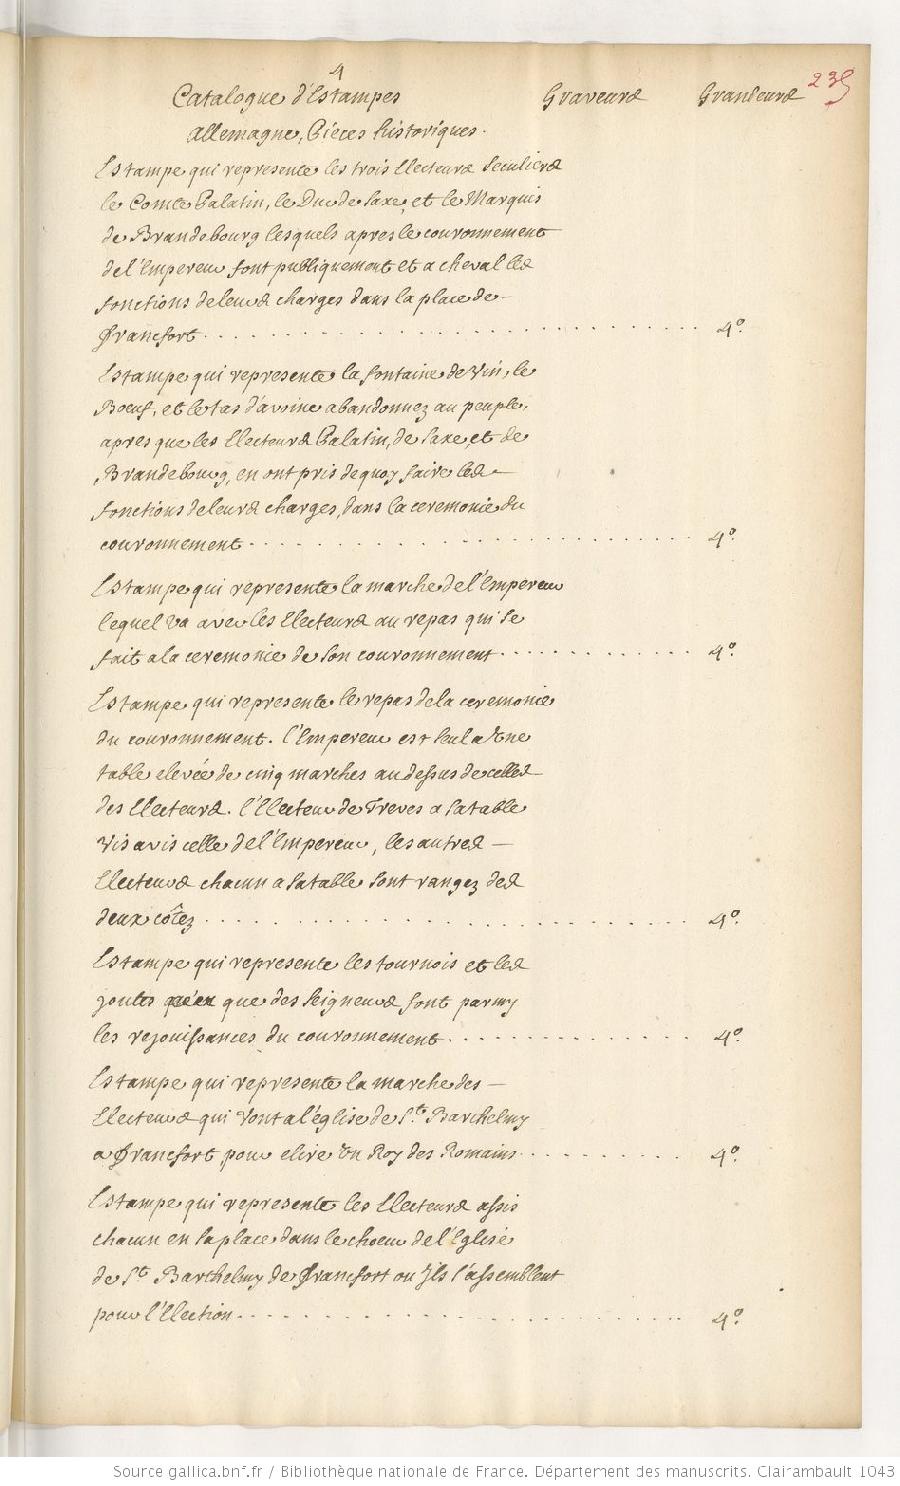 4
Catalogue d'Estampes Graveurs Grandeurs 235
allemagne, Pieces historiques.
Estampe qui represente les trois Electeurs Seculiers
le Comte Palatin, le Duc de Saxe, et le Marquis
de Brandebourg lesquels apres le couronnement
de l'Empereur font publiquement et a cheval les
fonctions de leurs charges dans la place de
francfort 4º.
Estampe qui represente la fontaine de Vin, le
Boeuf, et le tas d'avoine abandonnez au peuple,
apres que les Electeurs Palatin, de Saxe, et de
Brandebourg, en ont pris de quoy faire les
fonctions de leurs charges, dans la ceremonie du
couronnement 4º.
Estampe qui represente la marche de l'Empereur
lequel va avec les Electeurs au repas qui se
fait a la ceremonie de son couronnement 4º.
Estampe qui represente le repas de la ceremonie
du couronnement. l'Empereur est seul a Vne
table elevée de cinq marches au dessus de celles
des Electeurs. l'Electeur de Treves a sa table
vis avis celle de l'Empereur, les autres
Electeurs chacun a sa table sont rangez des
deux côtez 4º.
Estampe qui represente les tournois et les
joutes que des Seigneurs font parmy
les rejouissances du couronnement 4º.
Estampe qui represente la marche des
Electeurs qui vont a l'église de St. Barthelmy
a francfort pour elire Vn Roy des Romains 4º.
Estampe qui represente les Electeurs assis
chacun en sa place dans le choeur de l'Eglise
de St. Barthelmy de francfort ou Jls s'assemblent
pour l'Election 4º.
Source gallica.bnf.fr / Bibliothèque nationale de France. Département des manuscrits. Clairambault 1043